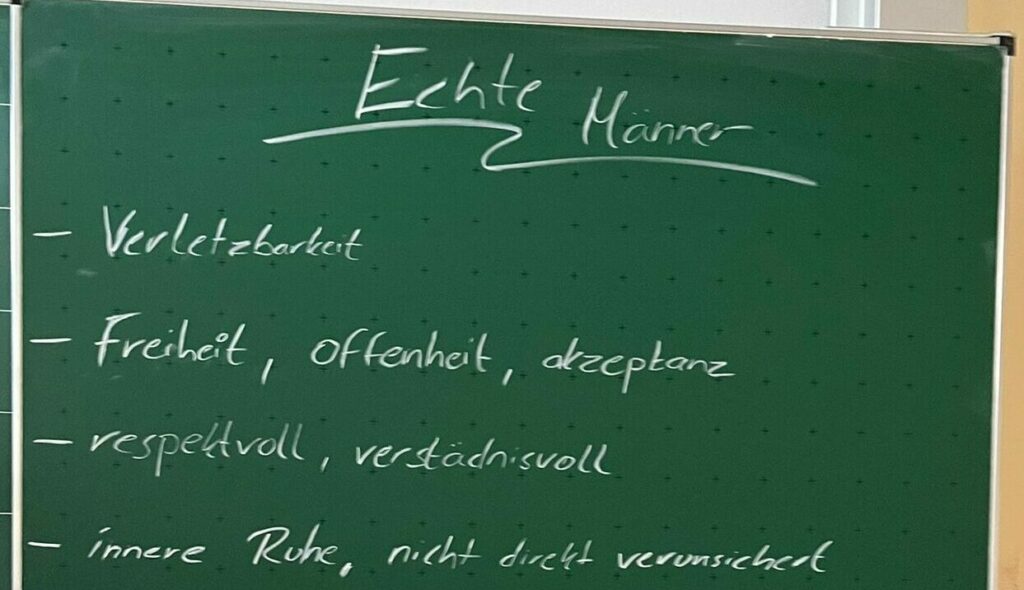 Echte Männer
- Verletzbarkeit
- Freiheit, Offenheit, akzeptanz
- respektvoll, verstädnisvoll
- innere Ruhe, nicht direkt verunsichert